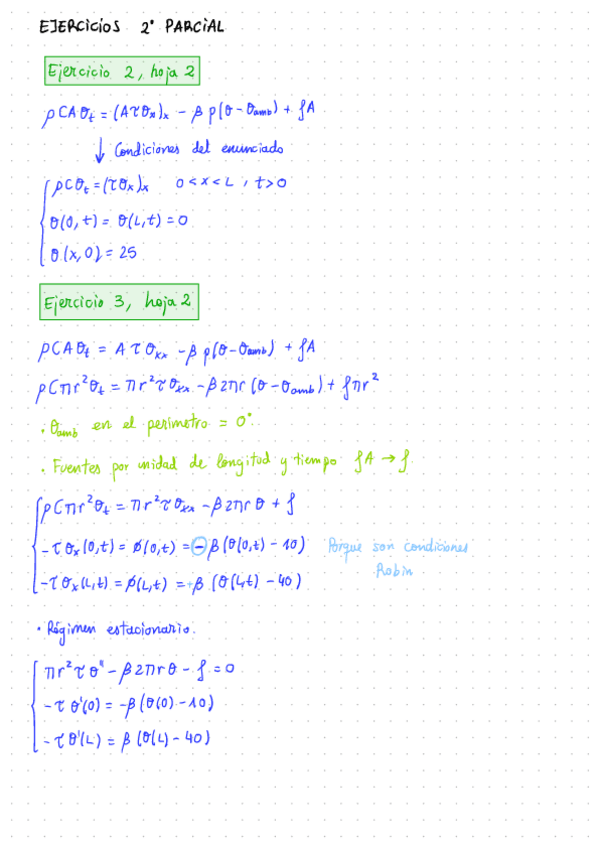 EJERCICIOS 2º PARCIAL
Ejercicio 2, hoja 2
ρCAθₜ = (Aτθₓ)ₓ - β p(θ - θamb) + fA
↓ Condiciones del enunciado
ρCθₜ = (τθₓ)ₓ 0 < x < L , t > 0
θ(0,t) = θ(L,t) = 0
θ(x,0) = 25
Ejercicio 3, hoja 2
ρCAθₜ = Aτθₓₓ - β p(θ - θamb) + fA
ρCπr²θₜ = πr²τθₓₓ - β2πr(θ - θamb) + fπr²
· θamb en el perímetro = 0°.
· Fuentes por unidad de longitud y tiempo fA → f
ρCπr²θₜ = πr²τθₓₓ - β2πrθ + f
-τθₓ(0,t) = ϕ(0,t) = - β(θ(0,t) - 10) Porque son condiciones
Robin
-τθₓ(L,t) = ϕ(L,t) = +β (θ(L,t) - 40)
· Régimen estacionario.
πr²τθ'' - β2πrθ - f = 0
-τθ'(0) = -β(θ(0) - 10)
-τθ'(L) = β(θ(L) - 40)